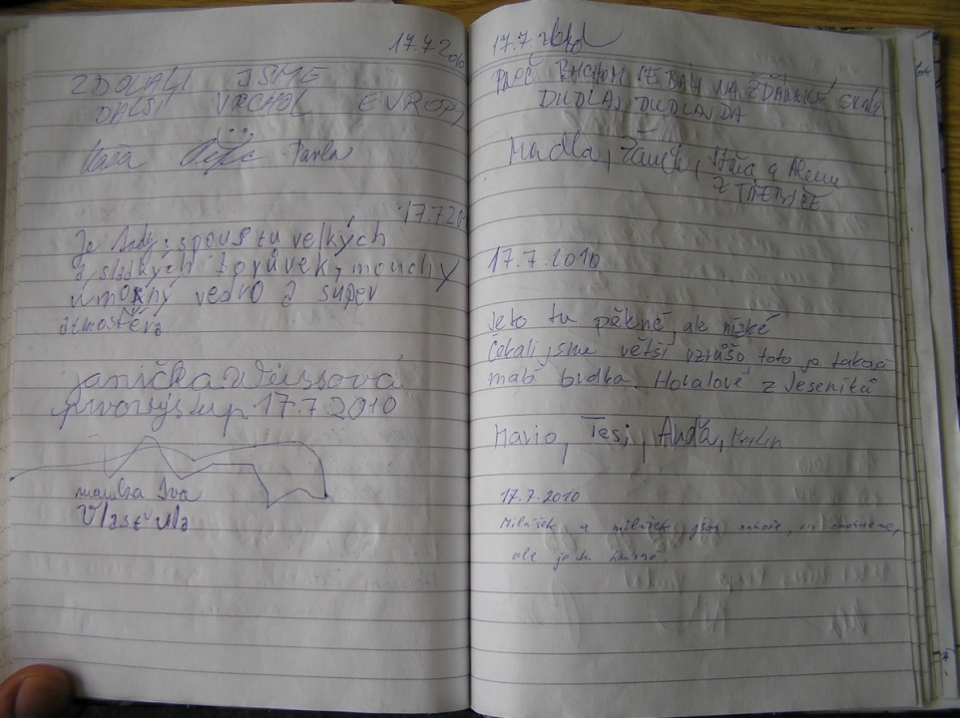 17.7.2010
ZDOLALI JSME
DALŠÍ VRCHOL EVROPY
Pavla
17.7.20
Je tady spousta velkých
a sladkých borůvek, mouchy
vedro a super
atmosféra
Janička Weissová
prvovýstup 17.7.2010
mamka Iva
Vlasť
17.7.
PROČ BYCHOM SE BÁLI NA ŽĎÁRSKÉ
DUDLAJ DUDLAJDA
Madla, Stáňa a Alena
Z TŘEBÍČE
17.7.2010
Jeto tu pěkné, ale nízké
Čekali jsme větší vzrůšo toto je taková
malá brdka. Horalové z Jeseníků
Mario, Tesi, Anďa,
17.7.2010
Milášek a milášek jsou nahoře,
ale je tu krásně.